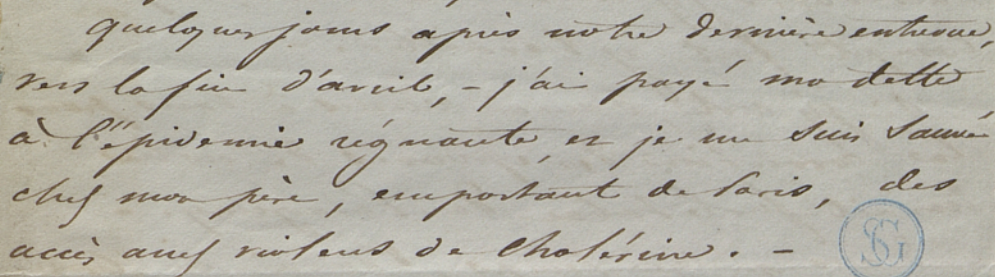 quelques jours après notre dernière entrevue,
vers la fin d'avril, - j'ai payé ma dette
à l'épidémie régnante, et je me suis sauvé
chez mon père, emportant de Paris, des
accès assez violens de cholérine. -
SG